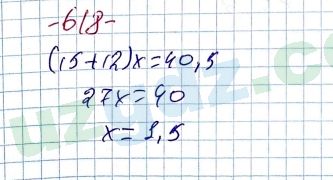 -618-
(15+12)x=40,5
27x=40
x=1,5